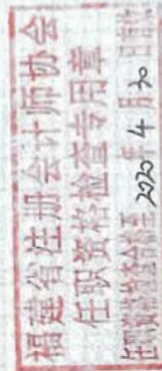 福建省注册会计师协会
任职资格检查专用章
任职资格检查合格至 2020年4月30日有效